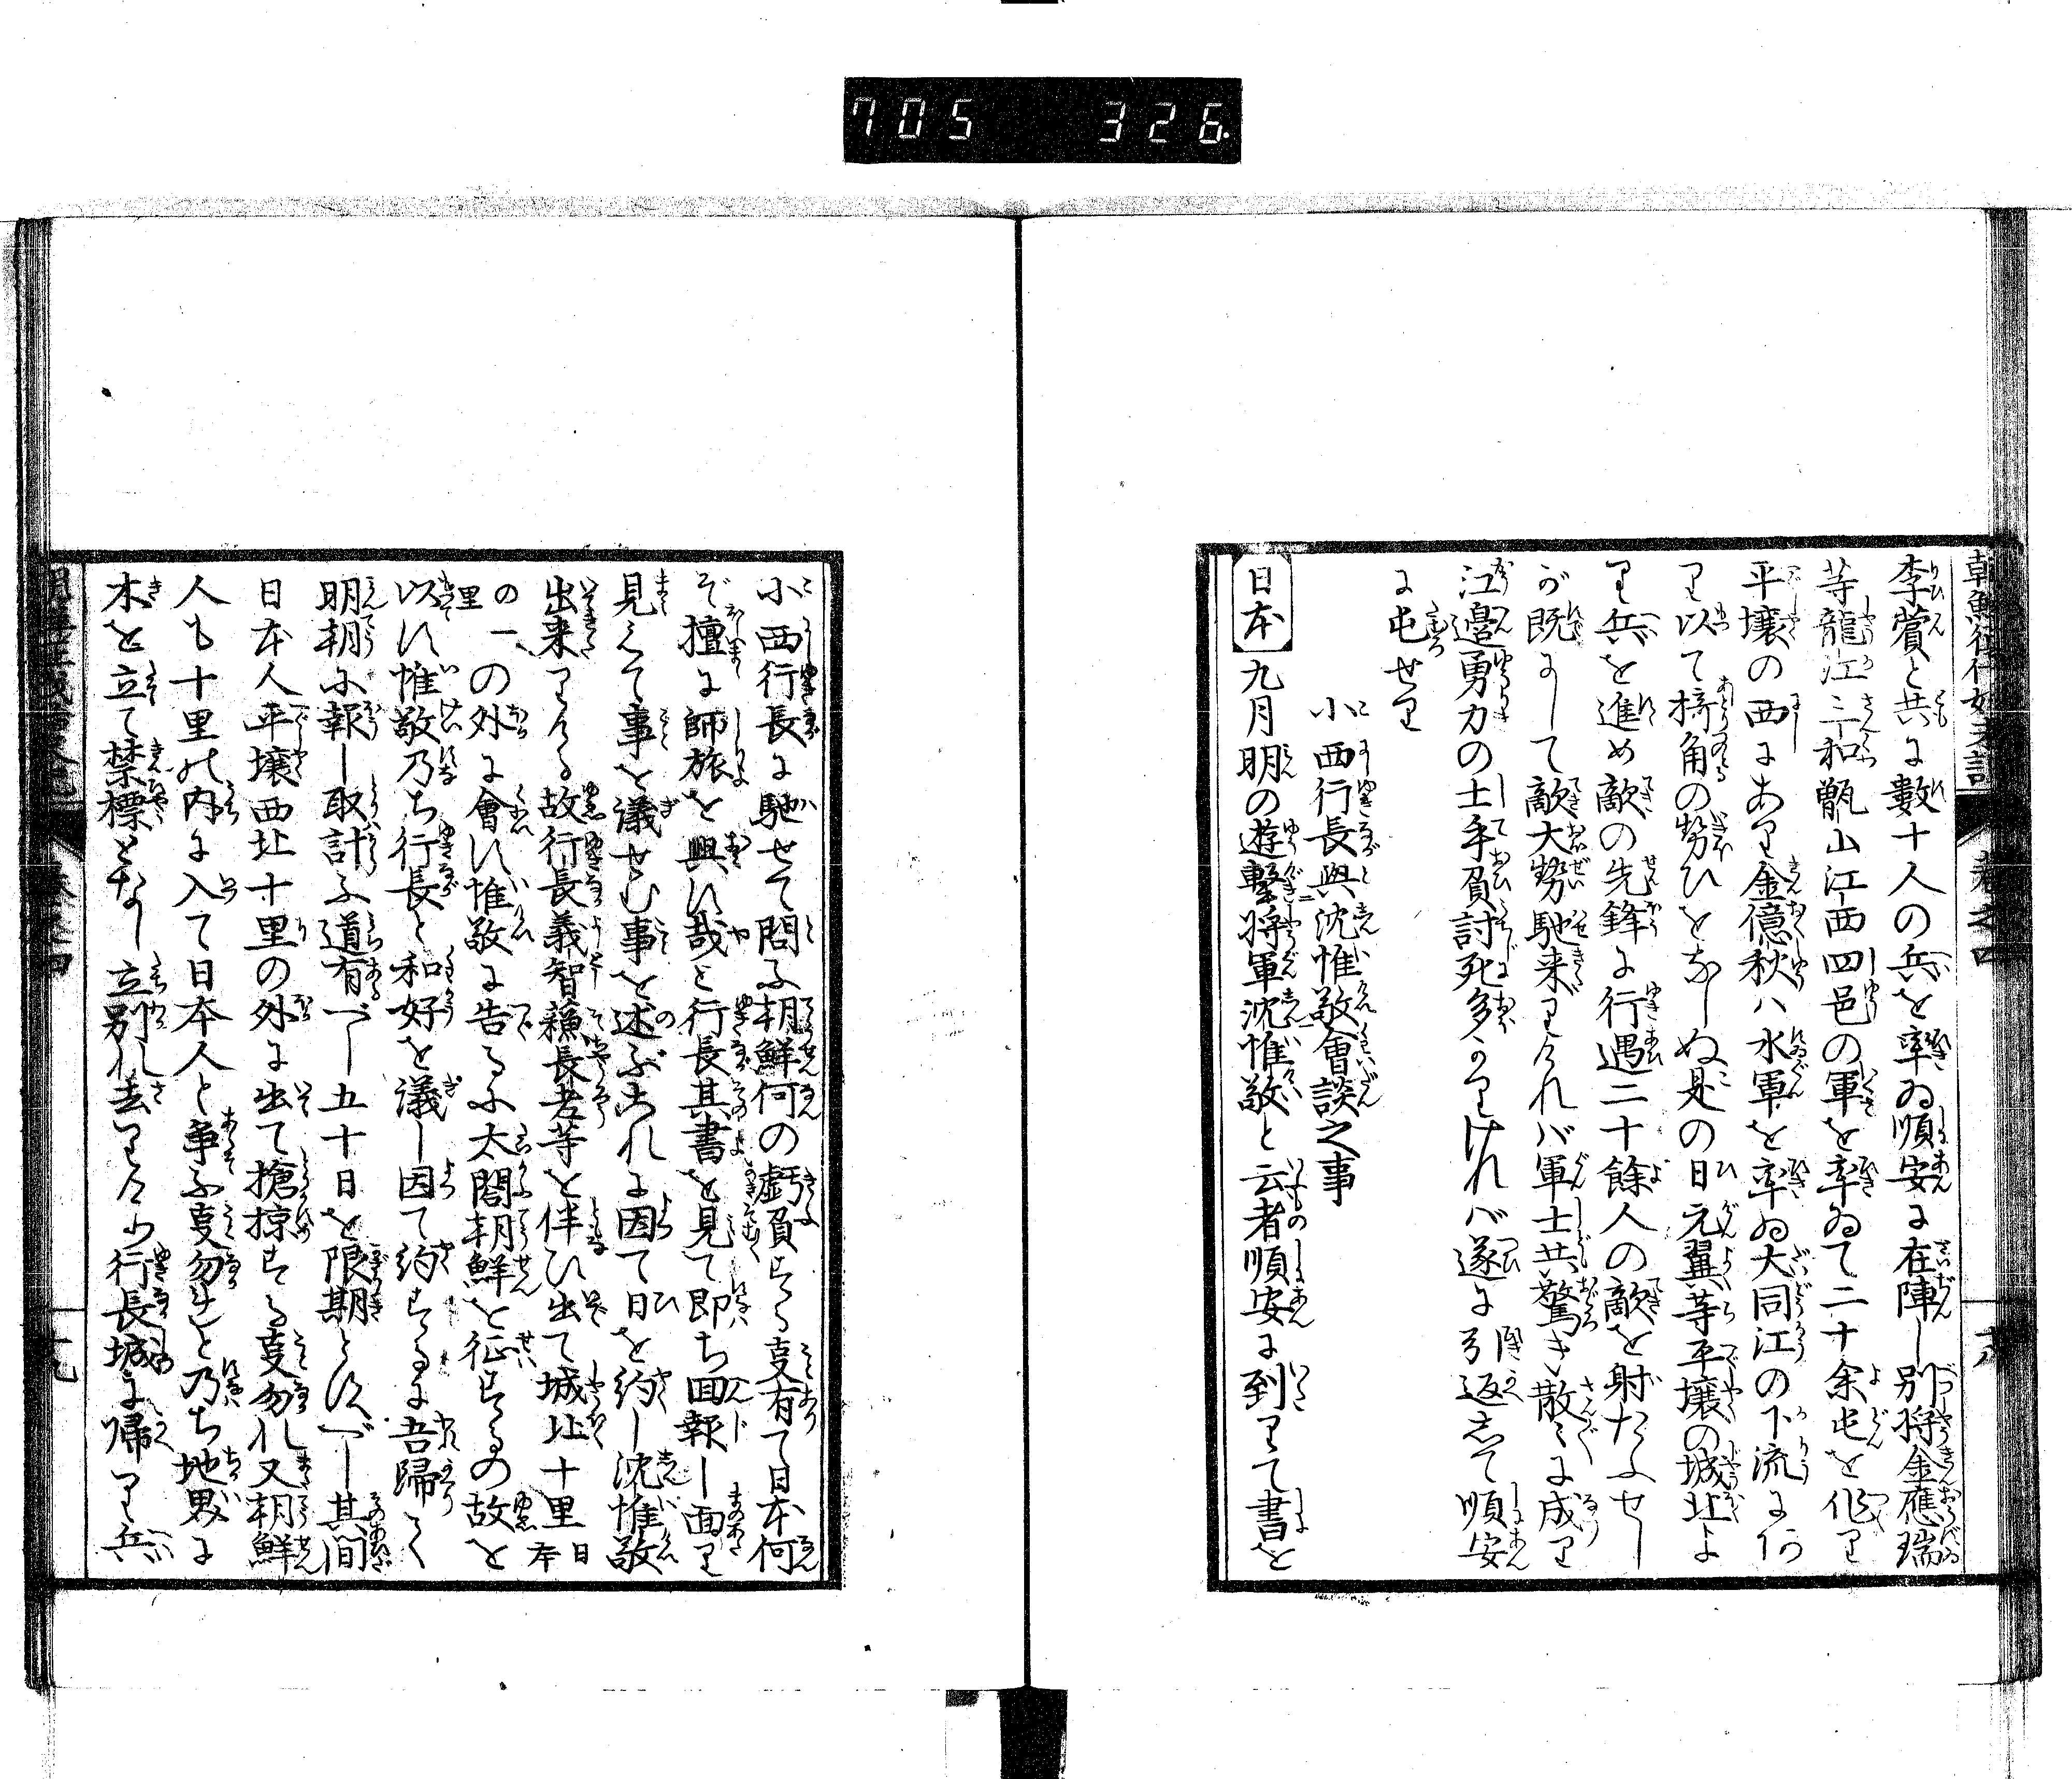 705 326
李薲と共に數十人の兵を率ゐ順安に在陣し別将金應瑞
等龍江三和甑山江西四邑の軍を率ゐて二十余屯を作り
平壌の西にあり金億秋ハ水軍を率ゐ大同江の下流にあ
り以て掎角の勢ひをなしぬ是の日元翼等平壌の城北よ
り兵を進め敵の先鋒に行遇二十餘人の敵を射たふせし
が既にして敵大勢馳来りければ軍士共驚き散々に成り
江邉勇力の士手負討死多かりければ遂に引返して順安
に屯せり
小西行長與沈惟敬會談之事
日本 九月明の遊撃将軍沈惟敬と云者順安に到りて書を
小西行長に馳せて問ふ朝鮮何の虧負する事有て日本何
ぞ擅に師旅を興す哉と行長其書を見て即ち回報し面り
見えて事を議せむ事を述ぶこれに因て日を約し沈惟敬
出来りける故行長義智䕃長老等を伴ひ出て城北十里日本
の一里の外に會す惟敬に告るに太閤朝鮮を征するの故を
以す惟敬乃ち行長と和好を議し因て約するに吾歸て
明朝に報し取計ふ道有べし五十日を限期とすべし其間
日本人平壌西北十里の外に出て搶掠する事勿れ又朝鮮
人も十里の内に入て日本人と争ふ事勿れと乃ち地界に
木を立て禁標となし立別れ去りけり行長城に帰り兵